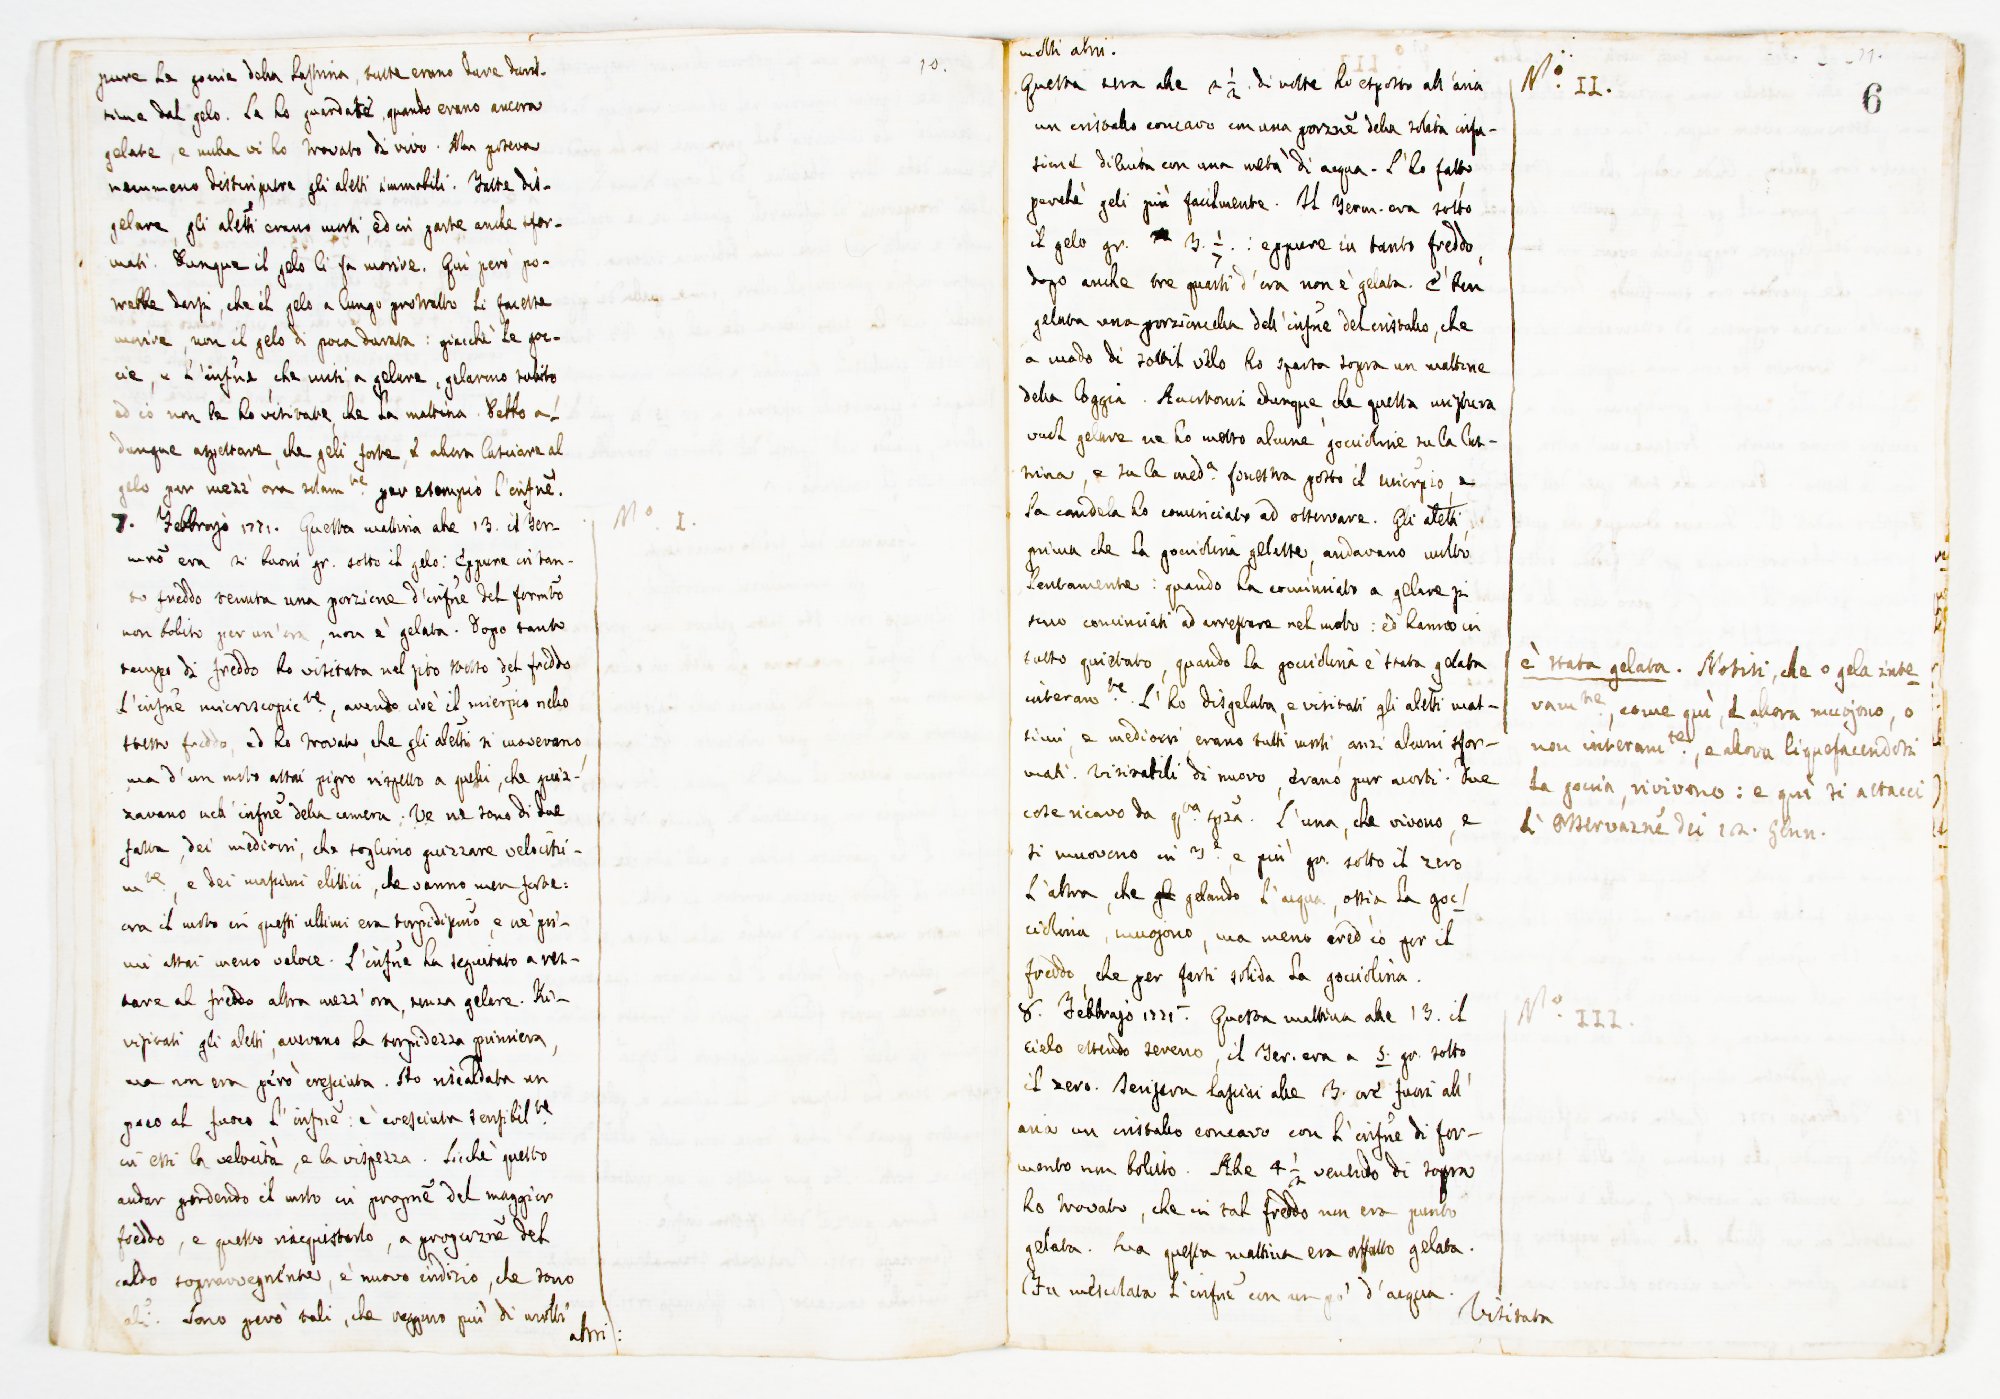 10.
pure le gocie della lastrina, tutte erano dure duris-
sime dal gelo. Le ho guardate, quando erano ancora
gelate, e nulla vi ho trovato di vivo. Non poteva
nemmeno distinguere gli aletti immobili. Fatte dis-
gelare, gli aletti erano morti, ed in parte anche sfor-
mati. Dunque il gelo li fa morire. Qui però po-
trebbe darsi, che il gelo a lungo protratto li facesse
morire, non il gelo di poca durata: giacchè le goc-
cie, e l'infne, che misi a gelare, gelarono subito
ed io non le ho visitate, che la mattina. Debbo a-
dunque aspettare, che geli forte, e allora lasciare al
gelo per mezz'ora solamte per esempio l'infne.
7. Febbrajo 1771. Questa mattina alle 13. il Ter-
mro era 2 buoni gr. sotto il gelo: Eppure in tan-
to freddo tenuta una porzione d'infne del formto
non bolito per un'ora, non è gelata. Dopo tanto
tempo di freddo ho visitata nel sito stesso del freddo
l'infne microscopicte, avendo cioè il micrpio nello
stesso freddo, ed ho trovato, che gli aletti si movevano,
ma d'un moto assai pigro, rispetto a quelli, che guiz-
zavano nell'infne della camera. Ve ne sono di due
fatta, dei mediocri, che sogliono guizzare velocissi-
mte, e dei massimi elittici, che vanno men forte:
ora il moto in questi ultimi era torpidissimo, e ne' pri-
mi assai meno veloce. L'infne ha seguitato a res-
tare al freddo altra mezz'ora, senza gelare. Ri-
visitati gli aletti, avevano la torpidezza primiera,
ma non era però cresciuta. Ho riscaldata un
poco al fuoco l'infne: è cresciuta sensibilte
in essi la velocità, e la vispezza. Sicchè questo
andar perdendo il moto in propne del maggior
freddo, e questo riacquistarlo, a proporzne del
caldo sopravvegnente, è nuovo indizio, che sono
ali. Sono però tali, che reggono più di molti
altri:
No. I.
11.
6
molti altri.
Questa sera alle 2 1/2. di notte ho esposto all'aria
un cristallo concavo con una porzne della solita infu-
sione diluita con una metà di acqua. L'ho fatto
perchè geli più facilmente. Il Term. era sotto
il gelo gr. 3. 1/7. : eppure in tanto freddo,
dopo anche tre quarti d'ora non è gelata. È ben
gelata una porzioncella dell'infne del cristallo, che
a modo di sottil velo ho sparsa sopra un mattone
della loggia. Accortomi dunque che questa mistura
vuol gelare ne ho messo alcune goccioline su la las-
trina, e su la meda fenestra posto il micrpio, e
la candela ho cominciato ad osservare. Gli aletti
prima che la gocciolina gelasse, andavano molto
lentamente: quando ha cominciato a gelare si
sono cominciati ad arrestare nel moto: ed hanno in
tutto quietato, quando la gocciolina è stata gelata
interamte. L'ho disgelata, e visitati gli aletti mas-
simi, e mediocri, erano tutti morti, anzi alcuni sfor-
mati. Visitatili di nuovo, erano pur morti. Due
cose ricavo da qta spza. L'una, che vivono, e
si muovono in 3, e più gr. sotto il zero
L'altra, che gelando l'acqua, ossia la goc-
ciolina, muojono, ma meno cred'io per il
freddo, che per farsi solida la gocciolina.
8. Febbrajo 1771. Questa mattina alle 13. il
cielo essendo sereno, il Ter. era a 5. gr. sotto
il zero. Jersera lasciai alle 3. ore fuori all'
aria un cristallo concavo con l'infne di for-
mento non bolito. Alle 4 1/2 venendo di sopra
ho trovato, che in tal freddo non era punto
gelata. Ma questa mattina era affatto gelata.
(Fu mescolata l'infne con un po' d'acqua.
Visitata
No. II.
è stata gelata. Notisi, che o gela inte-
ramte, come qui, e allora muojono, o
non interamte, e allora liquefacendosi
la goccia, rivivono: e qui si attacci
l'Osservazne dei 12. Genn.
No. III.